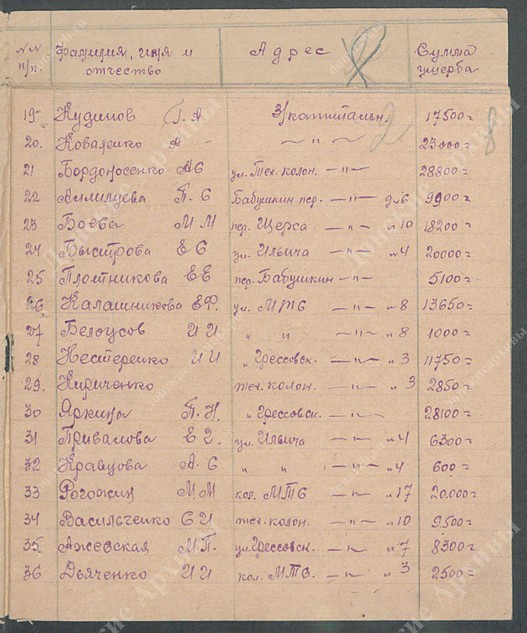 NN п/п. Фамилия, имя и отчество Адрес Сумма ущерба
19 Кудинов Г. А З/капитальн. 17500=
20. Коваленко А —"— 23000=
21 Бордоносенко АС ул. Тех. колон. 28800=
22 П. С Бабушкин пер. —"— д. 6 9900=
23 Боева М М пер. Щорса —"— "10 18200=
24 Быстрова Е С ул. Ильича —"— "4 20000=
25 Плотникова ЕЕ пер. Бабушкин —"— 5100=
26 Калашникова ЕФ. ул. МТС —"— "8 13650=
27 Белоусов И И " " —"— "8 1000=
28 Нестеренко И И "Грессовск. —"— "3 11750=
29. Кириченко тех. колон. —"— "3 2850=
30 Яркины П. Н. "Грессовск. —"— 28100=
31 Привалова Е Г. ул. Ильича —"— "4 6300=
32 Кравцова А. С " " —"— "4 600=
33 Рогожин М М кол. МТС —"— "17 20.000=
34 Васильченко С И тех. колон. —"— "10 9,500=
35 Ажевская М П. ул. Грессовск. —"— "7 8300=
36 Дьяченко И И кол. МТС. —"— "3 2500=